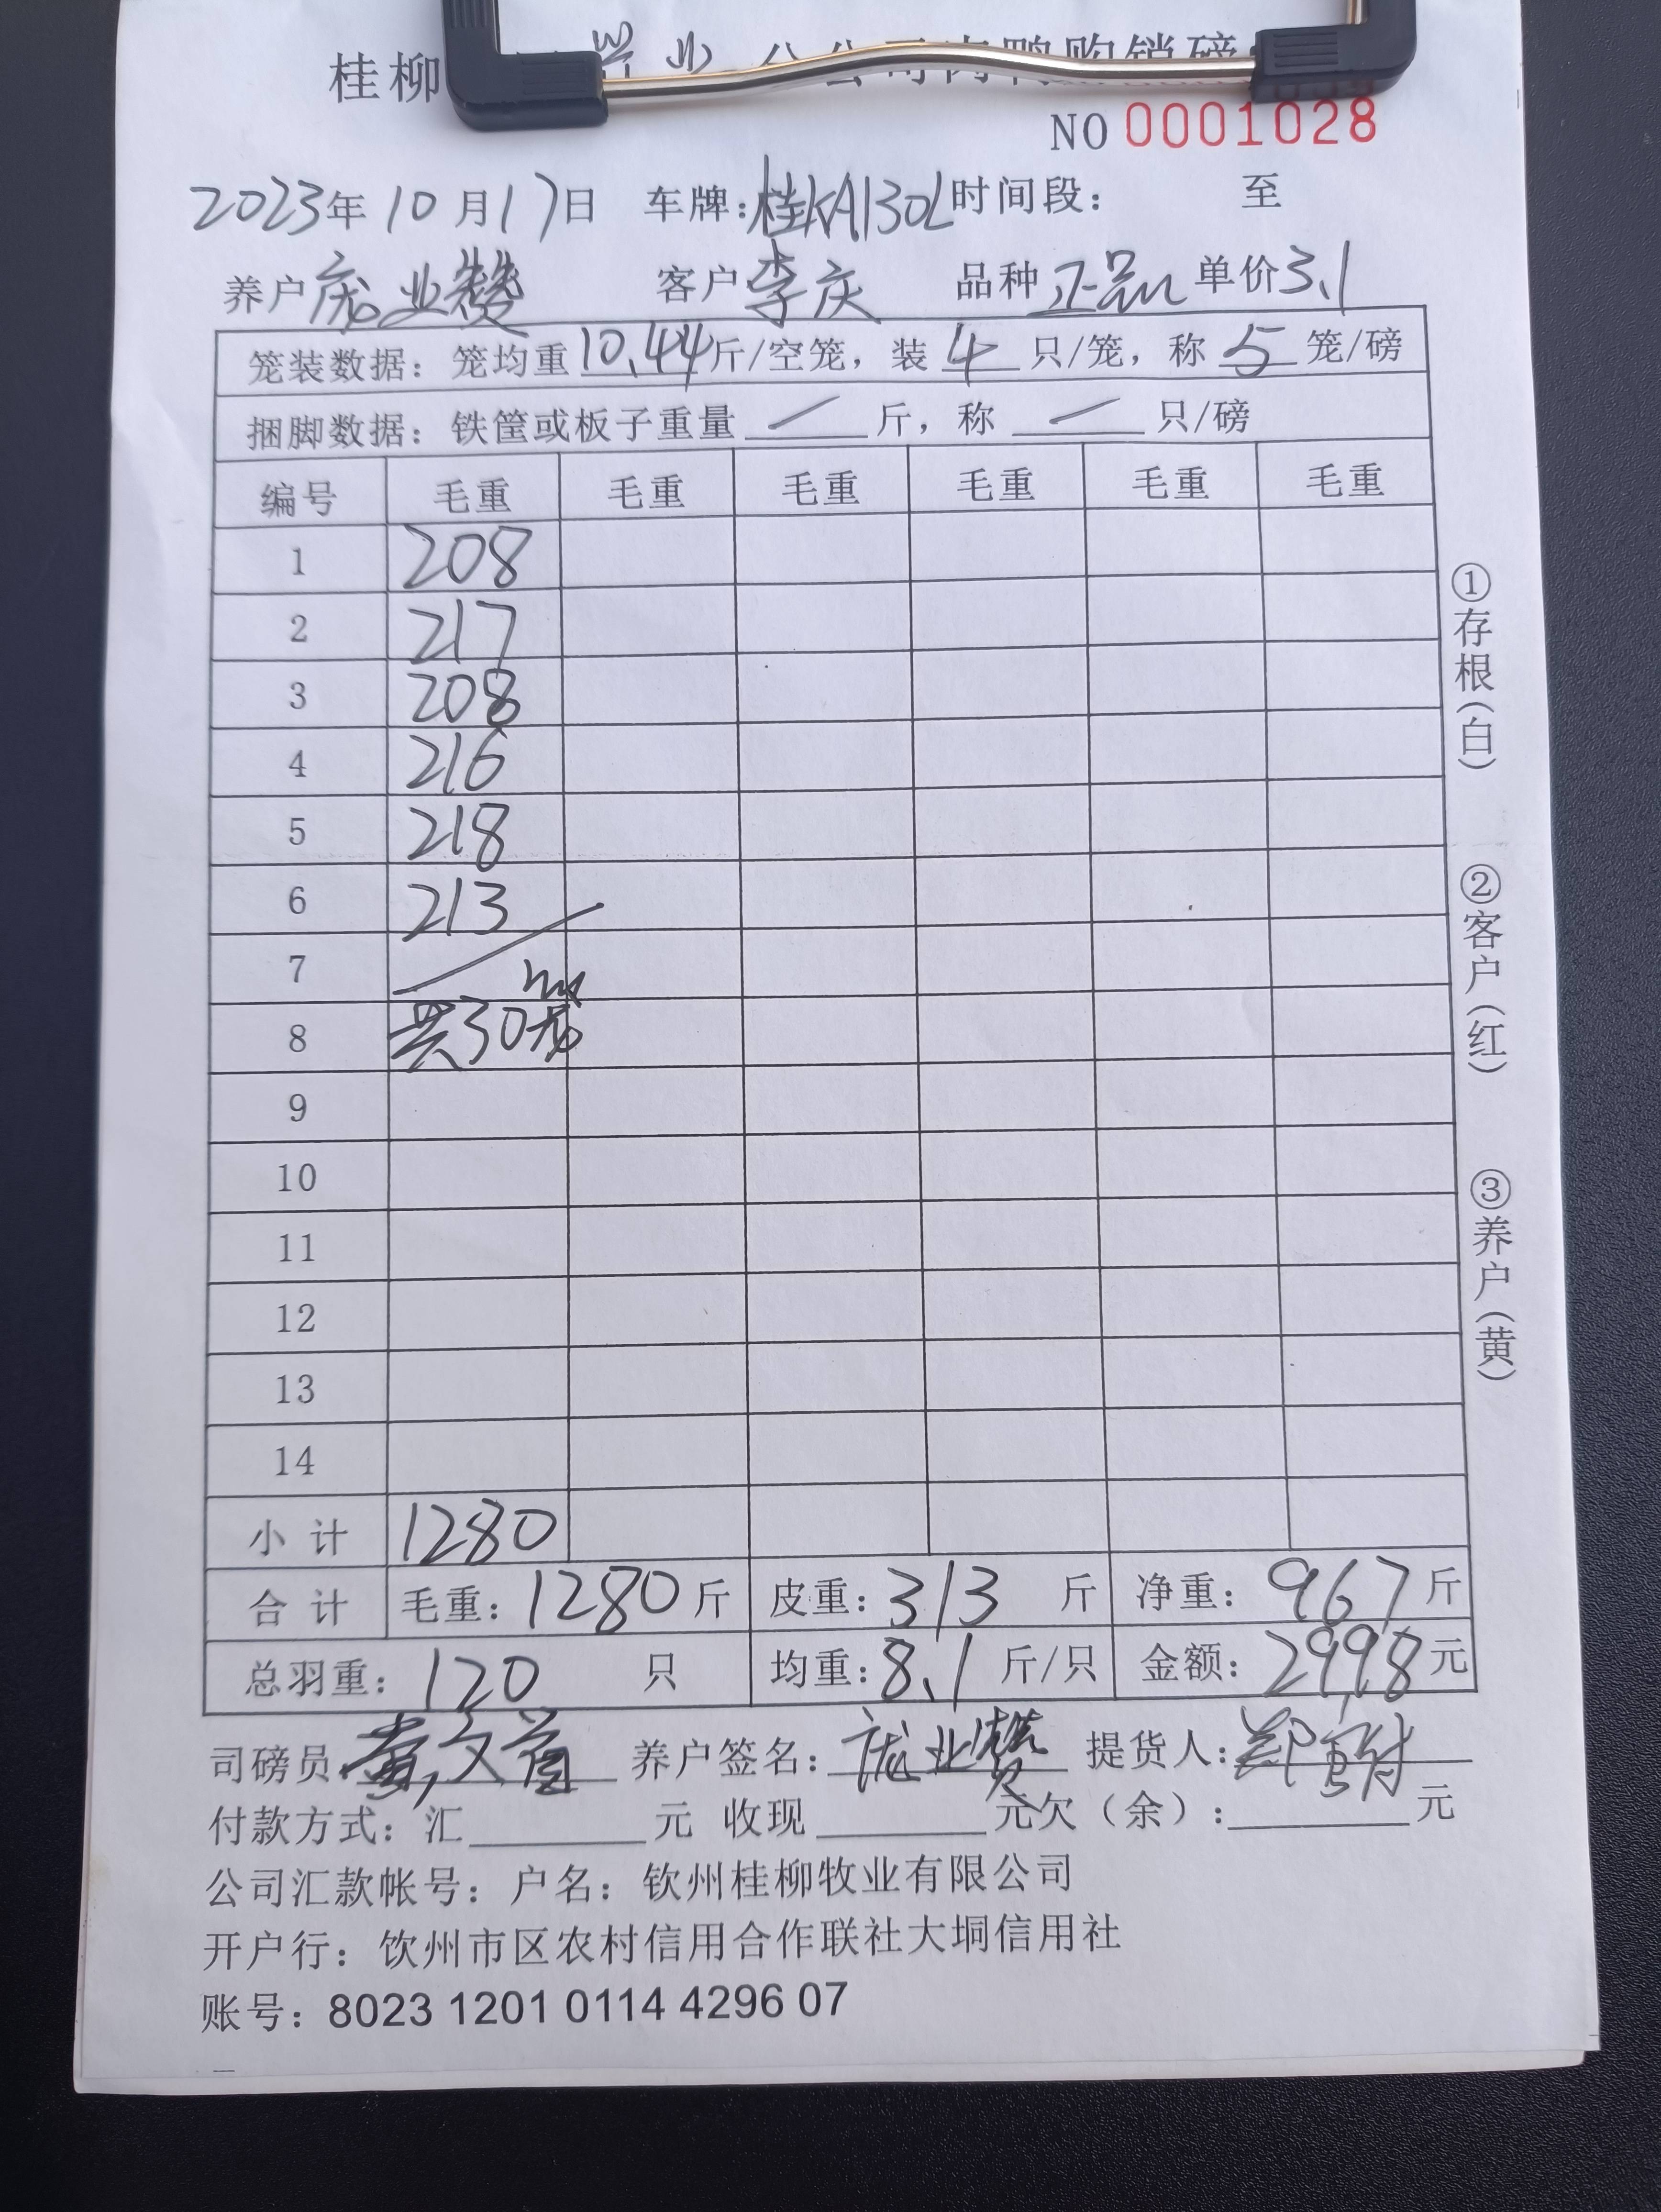 桂柳 业 分公司肉鸭购销磅
NO 0001028
2023年10月17日 车牌:桂KA130L 时间段: 至
养户 庞业赞 客户 李庆 品种 正品 单价3.1
笼装数据:笼均重10.44斤/空笼,装 4 只/笼,称 5 笼/磅
捆脚数据:铁筐或板子重量 / 斤,称 / 只/磅
编号 毛重 毛重 毛重 毛重 毛重 毛重
1 208
2 217
3 208
4 216
5 218
6 213
7
8 共30笼
9
10
11
12
13
14
小计 1280
合计 毛重:1280斤 皮重:313 斤 净重:967斤
总羽重:120 只 均重:8.1斤/只 金额:2998元
司磅员: 黄文首 养户签名:庞业赞 提货人:郑
付款方式:汇 元 收现 元欠(余): 元
公司汇款帐号:户名:钦州桂柳牧业有限公司
开户行:饮州市区农村信用合作联社大垌信用社
账号:8023 1201 0114 4296 07
①存根(白)
②客户(红)
③养户(黄)